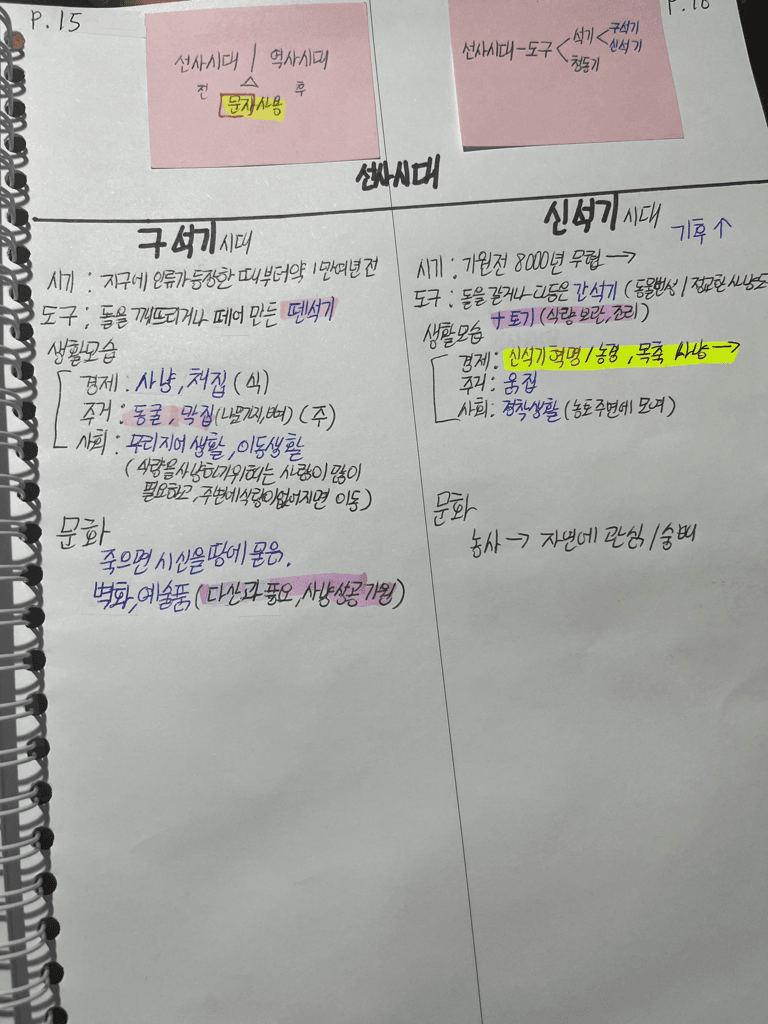 P.15
선사시대 | 역사시대
전 △ 후
문자사용
P.16
선사시대-도구
석기
구석기
신석기
청동기
선사시대
구석기시대
시기 : 지구에 인류가 등장한 때부터 약 1만여년 전
도구 : 돌을 깨뜨리거나 떼어 만든 뗀석기
생활모습
경제 : 사냥, 채집 (식)
주거 : 동굴, 막집 (나뭇가지, 뼈) (주)
사회 : 무리지어 생활, 이동생활
(식량을 사냥하기 위해는 사람이 많이
필요하고, 주변에 식량이 없어지면 이동)
문화
죽으면 시신을 땅에 묻음.
벽화, 예술품 (다산과 풍요, 사냥성공 기원)
신석기 시대
기후 ↑
시기 : 기원전 8000년 무렵 →
도구 : 돌을 갈거나 다듬은 간석기 (동물번성 / 정교한 사냥도
+ 토기 (식량 보관, 조리)
생활모습
경제 : 신석기 혁명 / 농경, 목축 사냥 →
주거 : 움집
사회 : 정착생활 (농토 주변에 모여)
문화
농사 → 자연에 관심 / 숭배